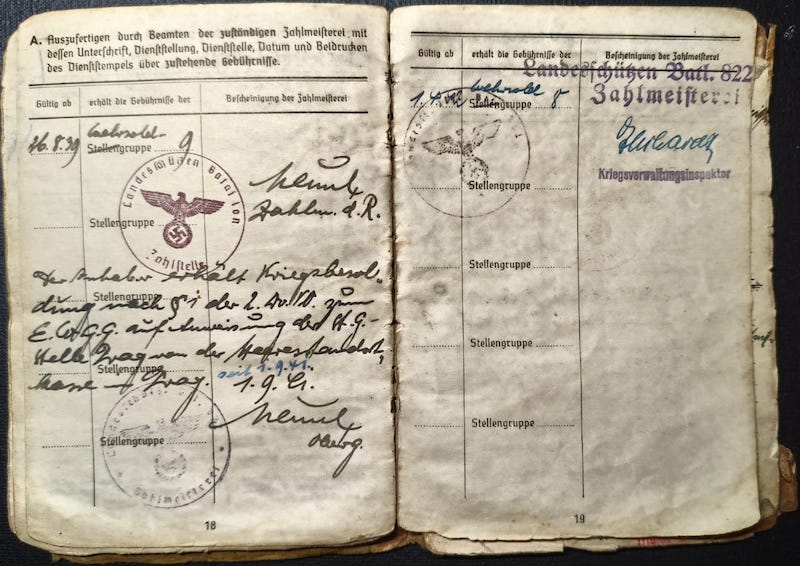 A. Auszufertigen durch Beamten der zuständigen Zahlmeisterei mit
dessen Unterschrift, Dienststellung, Dienststelle, Datum und Beidrucken
des Dienststempels über zustehende Gebührnisse.
Gültig ab
erhält die Gebührnisse der
Bescheinigung der Zahlmeisterei
26.8.39
Wehrsold-
Stellengruppe 9
Landesschützen Bataillon
Zahlstelle
Zahlm. d. R.
Stellengruppe
Der Inhaber erhält Kriegsbesol-
Stellengruppe
dung nach § 1 der 2. Dv. V. zum
E.W.G.G. auf Anweisung der H.G.-
Stelle Prag von der Heeresstandort-
Stellengruppe
kasse - Prag.
seit 1.9.41.
1.9.41.
Stellengruppe
Zahlmeisterei
18
Gültig ab
erhält die Gebührnisse der
Bescheinigung der Zahlmeisterei
Landesschützen Batl. 822
Zahlmeisterei
Wehrsold
Stellengruppe 8
Ehrhardt
Kriegsverwaltungsinspektor
Stellengruppe
Stellengruppe
Stellengruppe
Stellengruppe
19